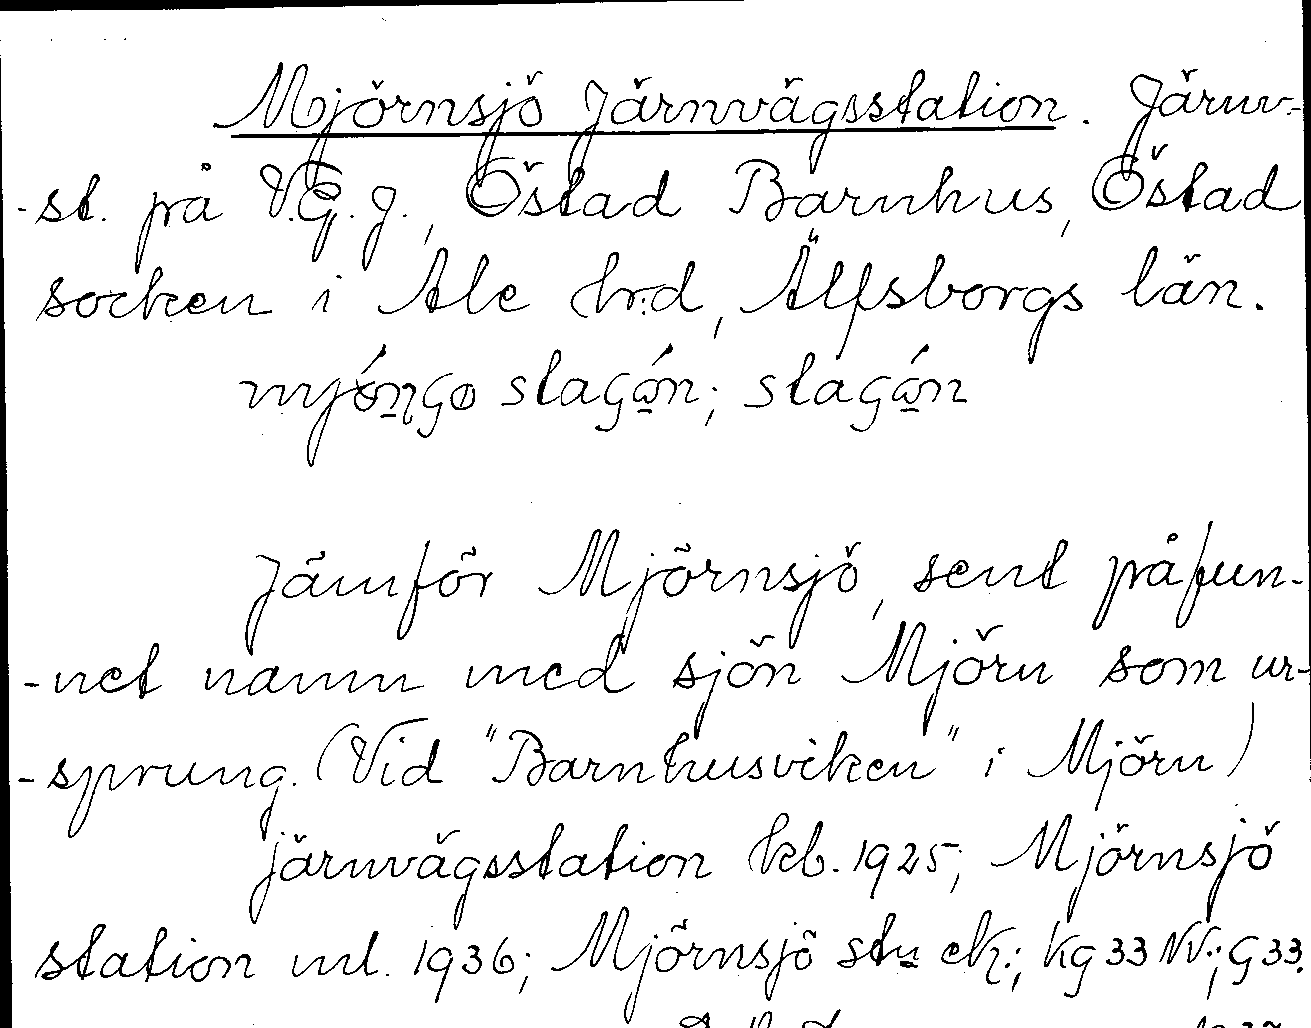 Mjörnsjö Järnvägsstation. Järnv-
-st. på V.G.J., Östad Barnhus, Östad
socken i Ale hrd, Älfsborgs län.
stagón; stagón
Jämför Mjörnsjö, sent påfun-
-net namn med sjön Mjörn som ur-
-sprung. (Vid "Barnhusviken" i Mjörn)
järnvägsstation kb. 1925; Mjörnsjö
station ml. 1936; Mjörnsjö stn ek.; kg 33 NV.; G 33.